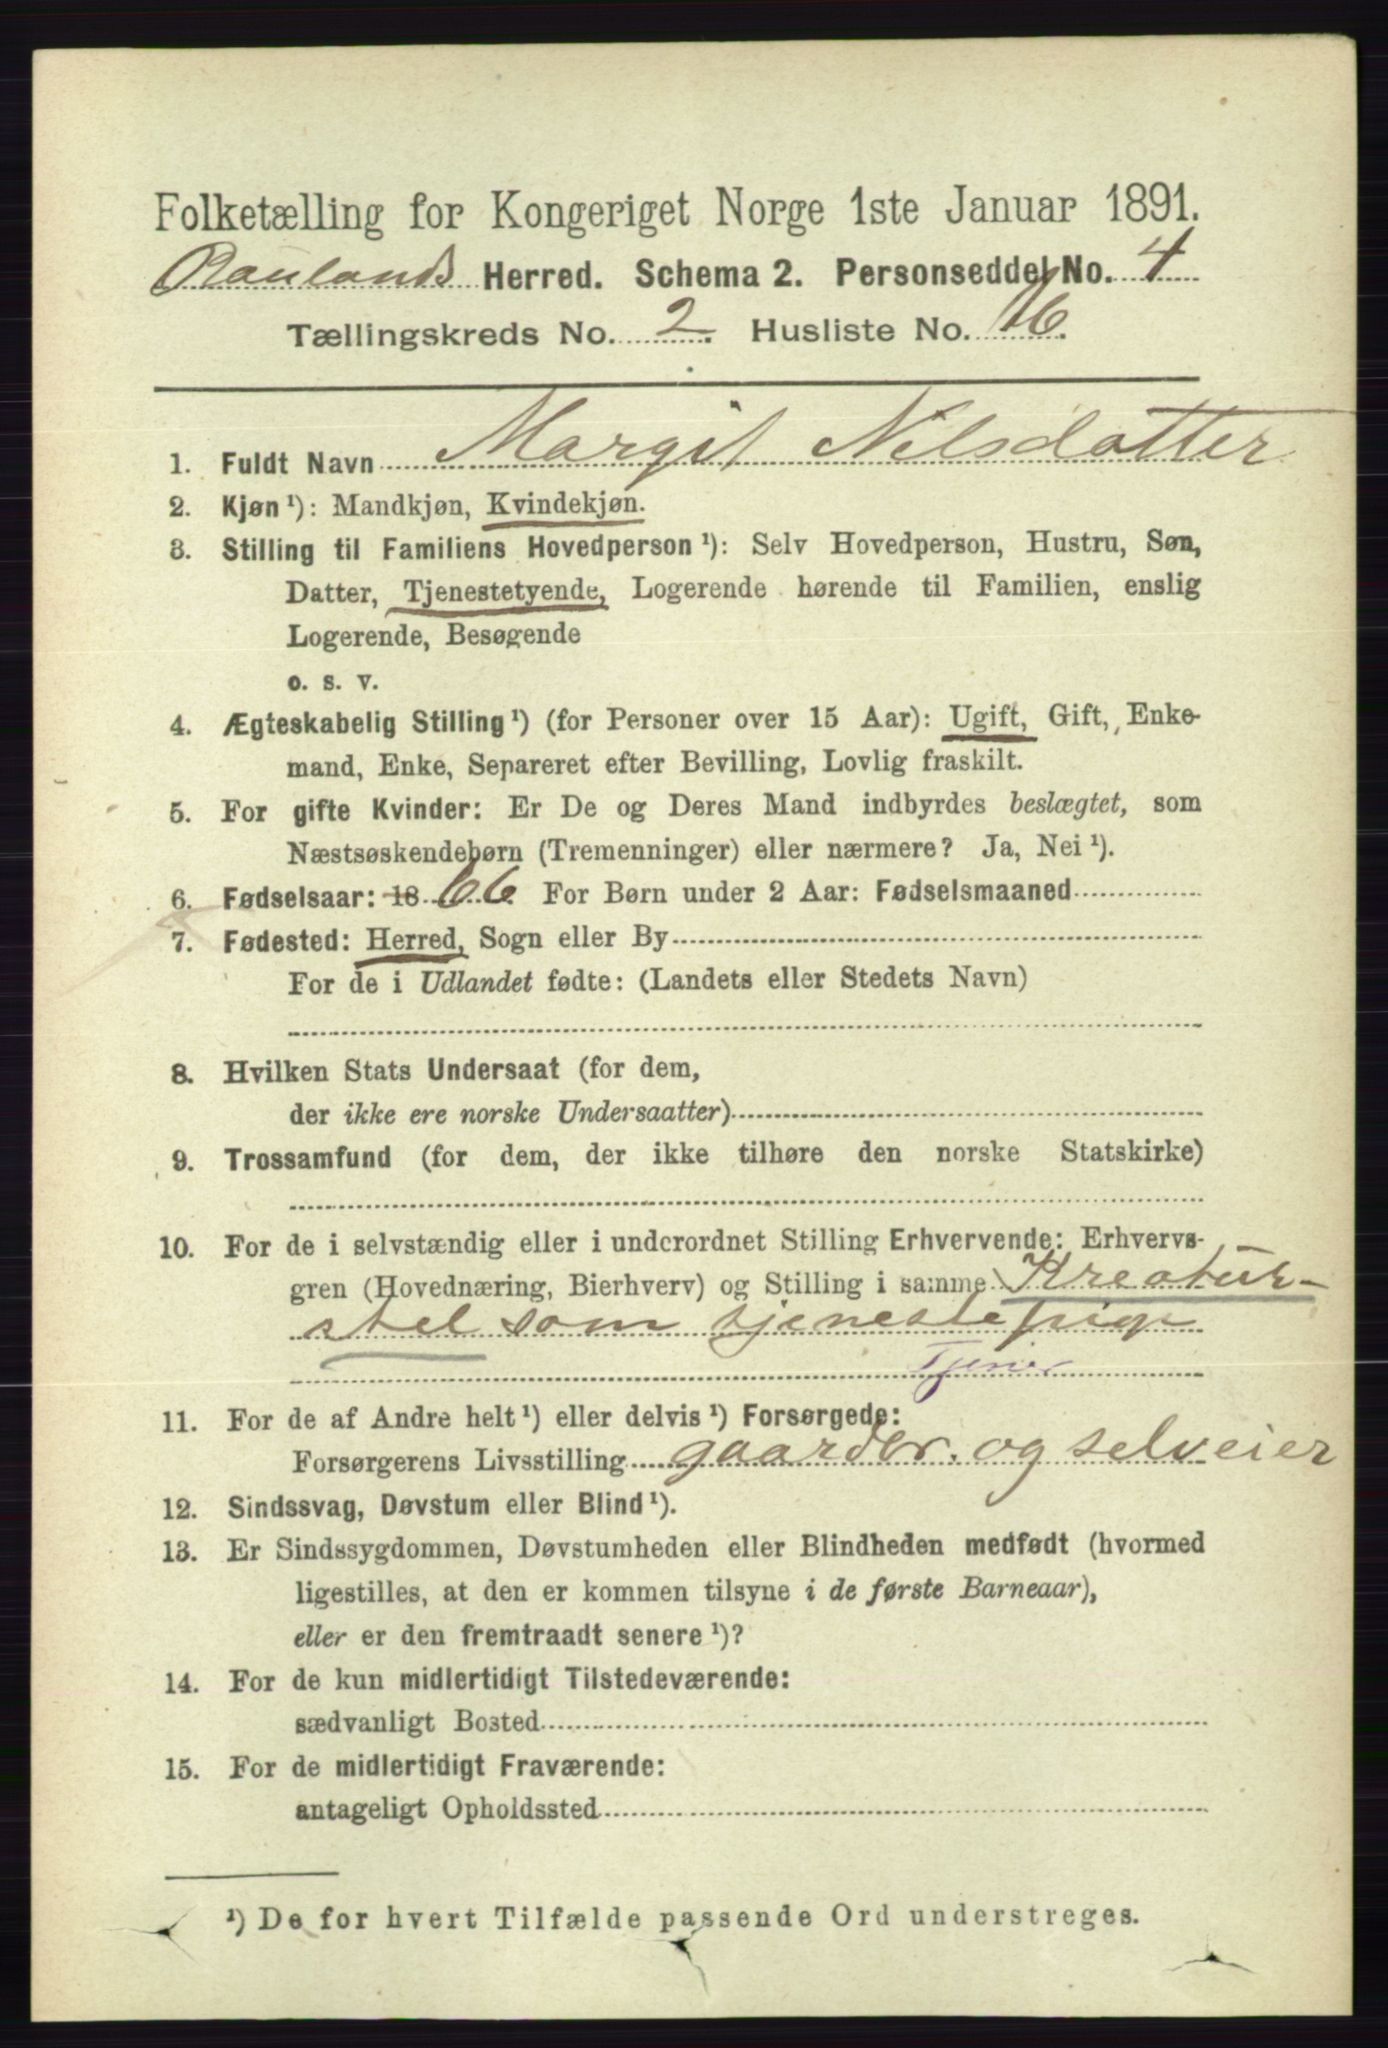 Folketælling for Kongeriget Norge 1ste Januar 1891.
Raulands Herred. Schema 2. Personseddel No. 4
Tællingskreds No. 2. Husliste No. 16.
1. Fuldt Navn Margit Nilsdatter
2. Kjøn ¹): Mandkjøn, Kvindekjøn.
3. Stilling til Familiens Hovedperson ¹): Selv Hovedperson, Hustru, Søn,
Datter, Tjenestetyende, Logerende hørende til Familien, enslig
Logerende, Besøgende
o. s. v.
4. Ægteskabelig Stilling ¹) (for Personer over 15 Aar): Ugift, Gift, Enke-
mand, Enke, Separeret efter Bevilling, Lovlig fraskilt.
5. For gifte Kvinder: Er De og Deres Mand indbyrdes beslægtet, som
Næstsøskendebørn (Tremenninger) eller nærmere? Ja, Nei ¹).
6. Fødselsaar: 18 66 For Børn under 2 Aar: Fødselsmaaned
7. Fødested: Herred, Sogn eller By
For de i Udlandet fødte: (Landets eller Stedets Navn)
8. Hvilken Stats Undersaat (for dem,
der ikke ere norske Undersaatter)
9. Trossamfund (for dem, der ikke tilhøre den norske Statskirke)
10. For de i selvstændig eller i underordnet Stilling Erhvervende: Erhvervs-
gren (Hovednæring, Bierhverv) og Stilling i samme Kreatur-
stel som tjenestepige
Tjener
11. For de af Andre helt ¹) eller delvis ¹) Forsørgede:
Forsørgerens Livsstilling gaardbr. og selveier
12. Sindssvag, Døvstum eller Blind ¹).
13. Er Sindssygdommen, Døvstumheden eller Blindheden medfødt (hvormed
ligestilles, at den er kommen tilsyne i de første Barneaar),
eller er den fremtraadt senere ¹)?
14. For de kun midlertidigt Tilstedeværende:
sædvanligt Bosted
15. For de midlertidigt Fraværende:
antageligt Opholdssted
¹) De for hvert Tilfælde passende Ord understreges.